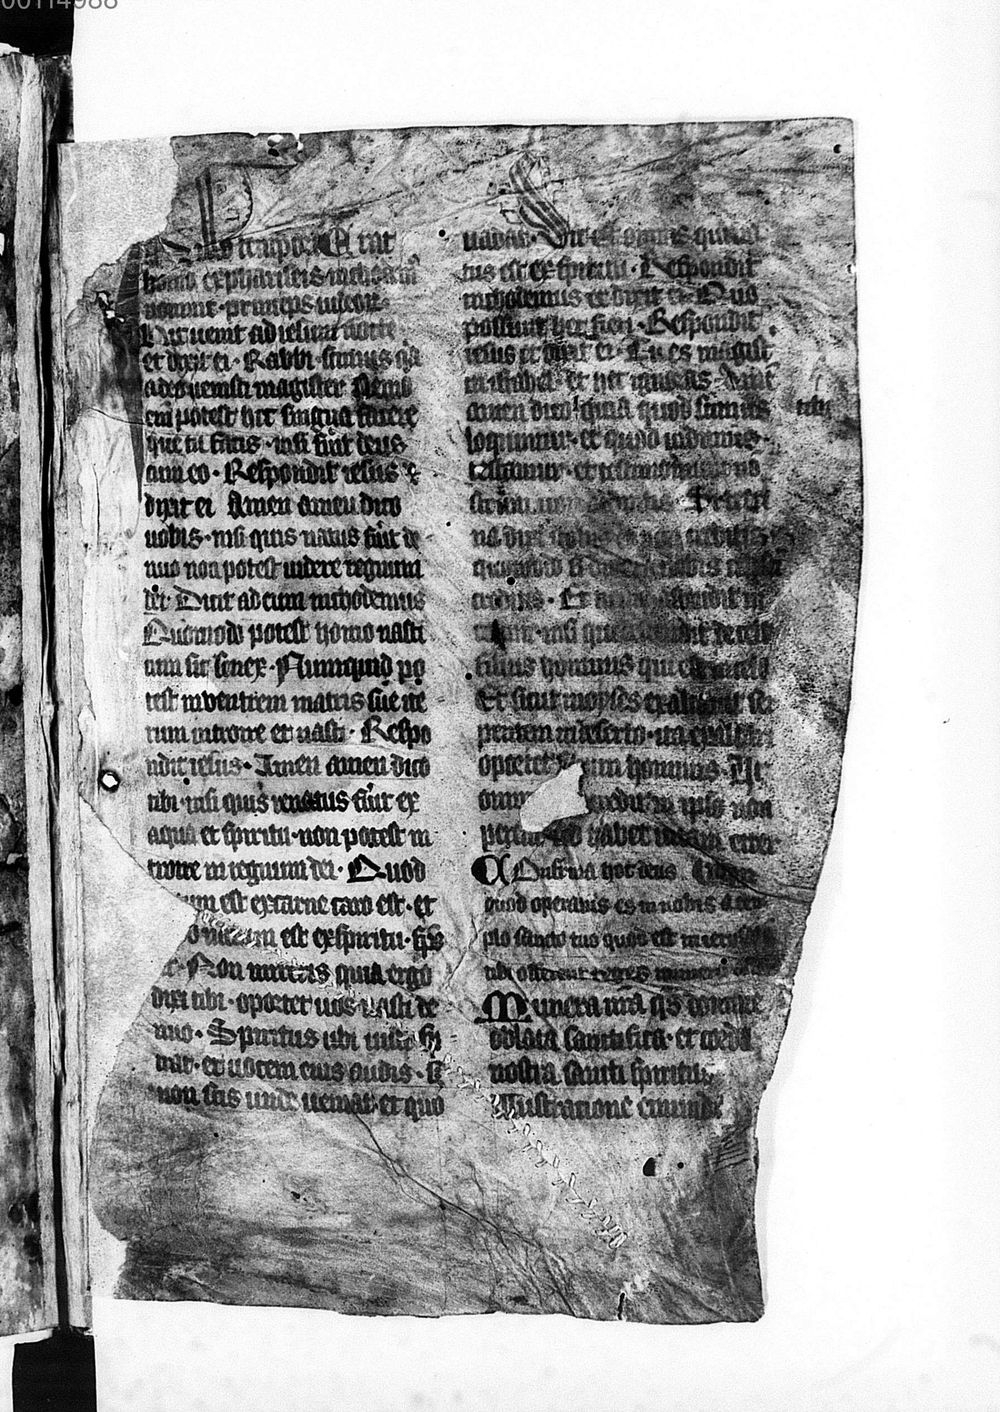 00114988
illo tempore Erat
homo ex phariseis nichoem9
nomine · princeps iudeor
Hic uenit ad iesum nocte
et dixit ei · Rabbi · scimus q̃a
a deo uenisti magister Nemo
em̃ potest hec signa facere
que tu facis · nisi fũit deus
cum eo · Respondit iesus ⁊
dixit ei Amen amen dico
uobis · nisi quis natus fũit de
nuo non potest uidere regnum
dei · Dicit ad eum nichodemus
Quomodo potest homo nasci
cum sit senex · Numquid po
test in uentrem matris sue ite
rum introire et nasci · Respo
ndit iesus · Amen amen dico
tibi · nisi quis renatus fũit ex
aqua et spiritu · non potest in
troire in regnum dei · Quod
est ex carne caro est · et
est ex spiritu · sp̃s
Non mireris quia ergo
dixi tibi · oportet uos nasci de
nuo · Spiritus ubi uult spi
rat · et uocem eius audis · s
non scis unde ueniat · et quo
uadat · Sic est omnis qui na
tus est ex spiritu · Respondit
nichodemus et dixit ei · Quo
possunt hec fieri · Respondit
iesus et dixit ei · Tu es magist
in israhel · et hec ignoras · Amẽ
amen dico quia quod scimus tibi
loquimur · et quod uidimus ·
testamur · et testimonium no
strum non
na dixi uobis et non creditis
quomodo si dixero uobis celestia
credetis · Et nemo ascendit in
celum · nisi qui de celo
filius hominis qui est in celo
Et sicut moyses exaltauit ser
pentem in deserto · ita exaltari
oportet hominis · Ut
omnis credit in ipso non
habet uitam eter
Confirma hoc deus
quod operatus es in nobis a tem
plo sancto tuo quod est in ierusalem
tibi offerent reges munera
Munera nr̃a qs̃ domine
oblata sanctifica · et corda
nostra sancti spiritus
illustratione emunda